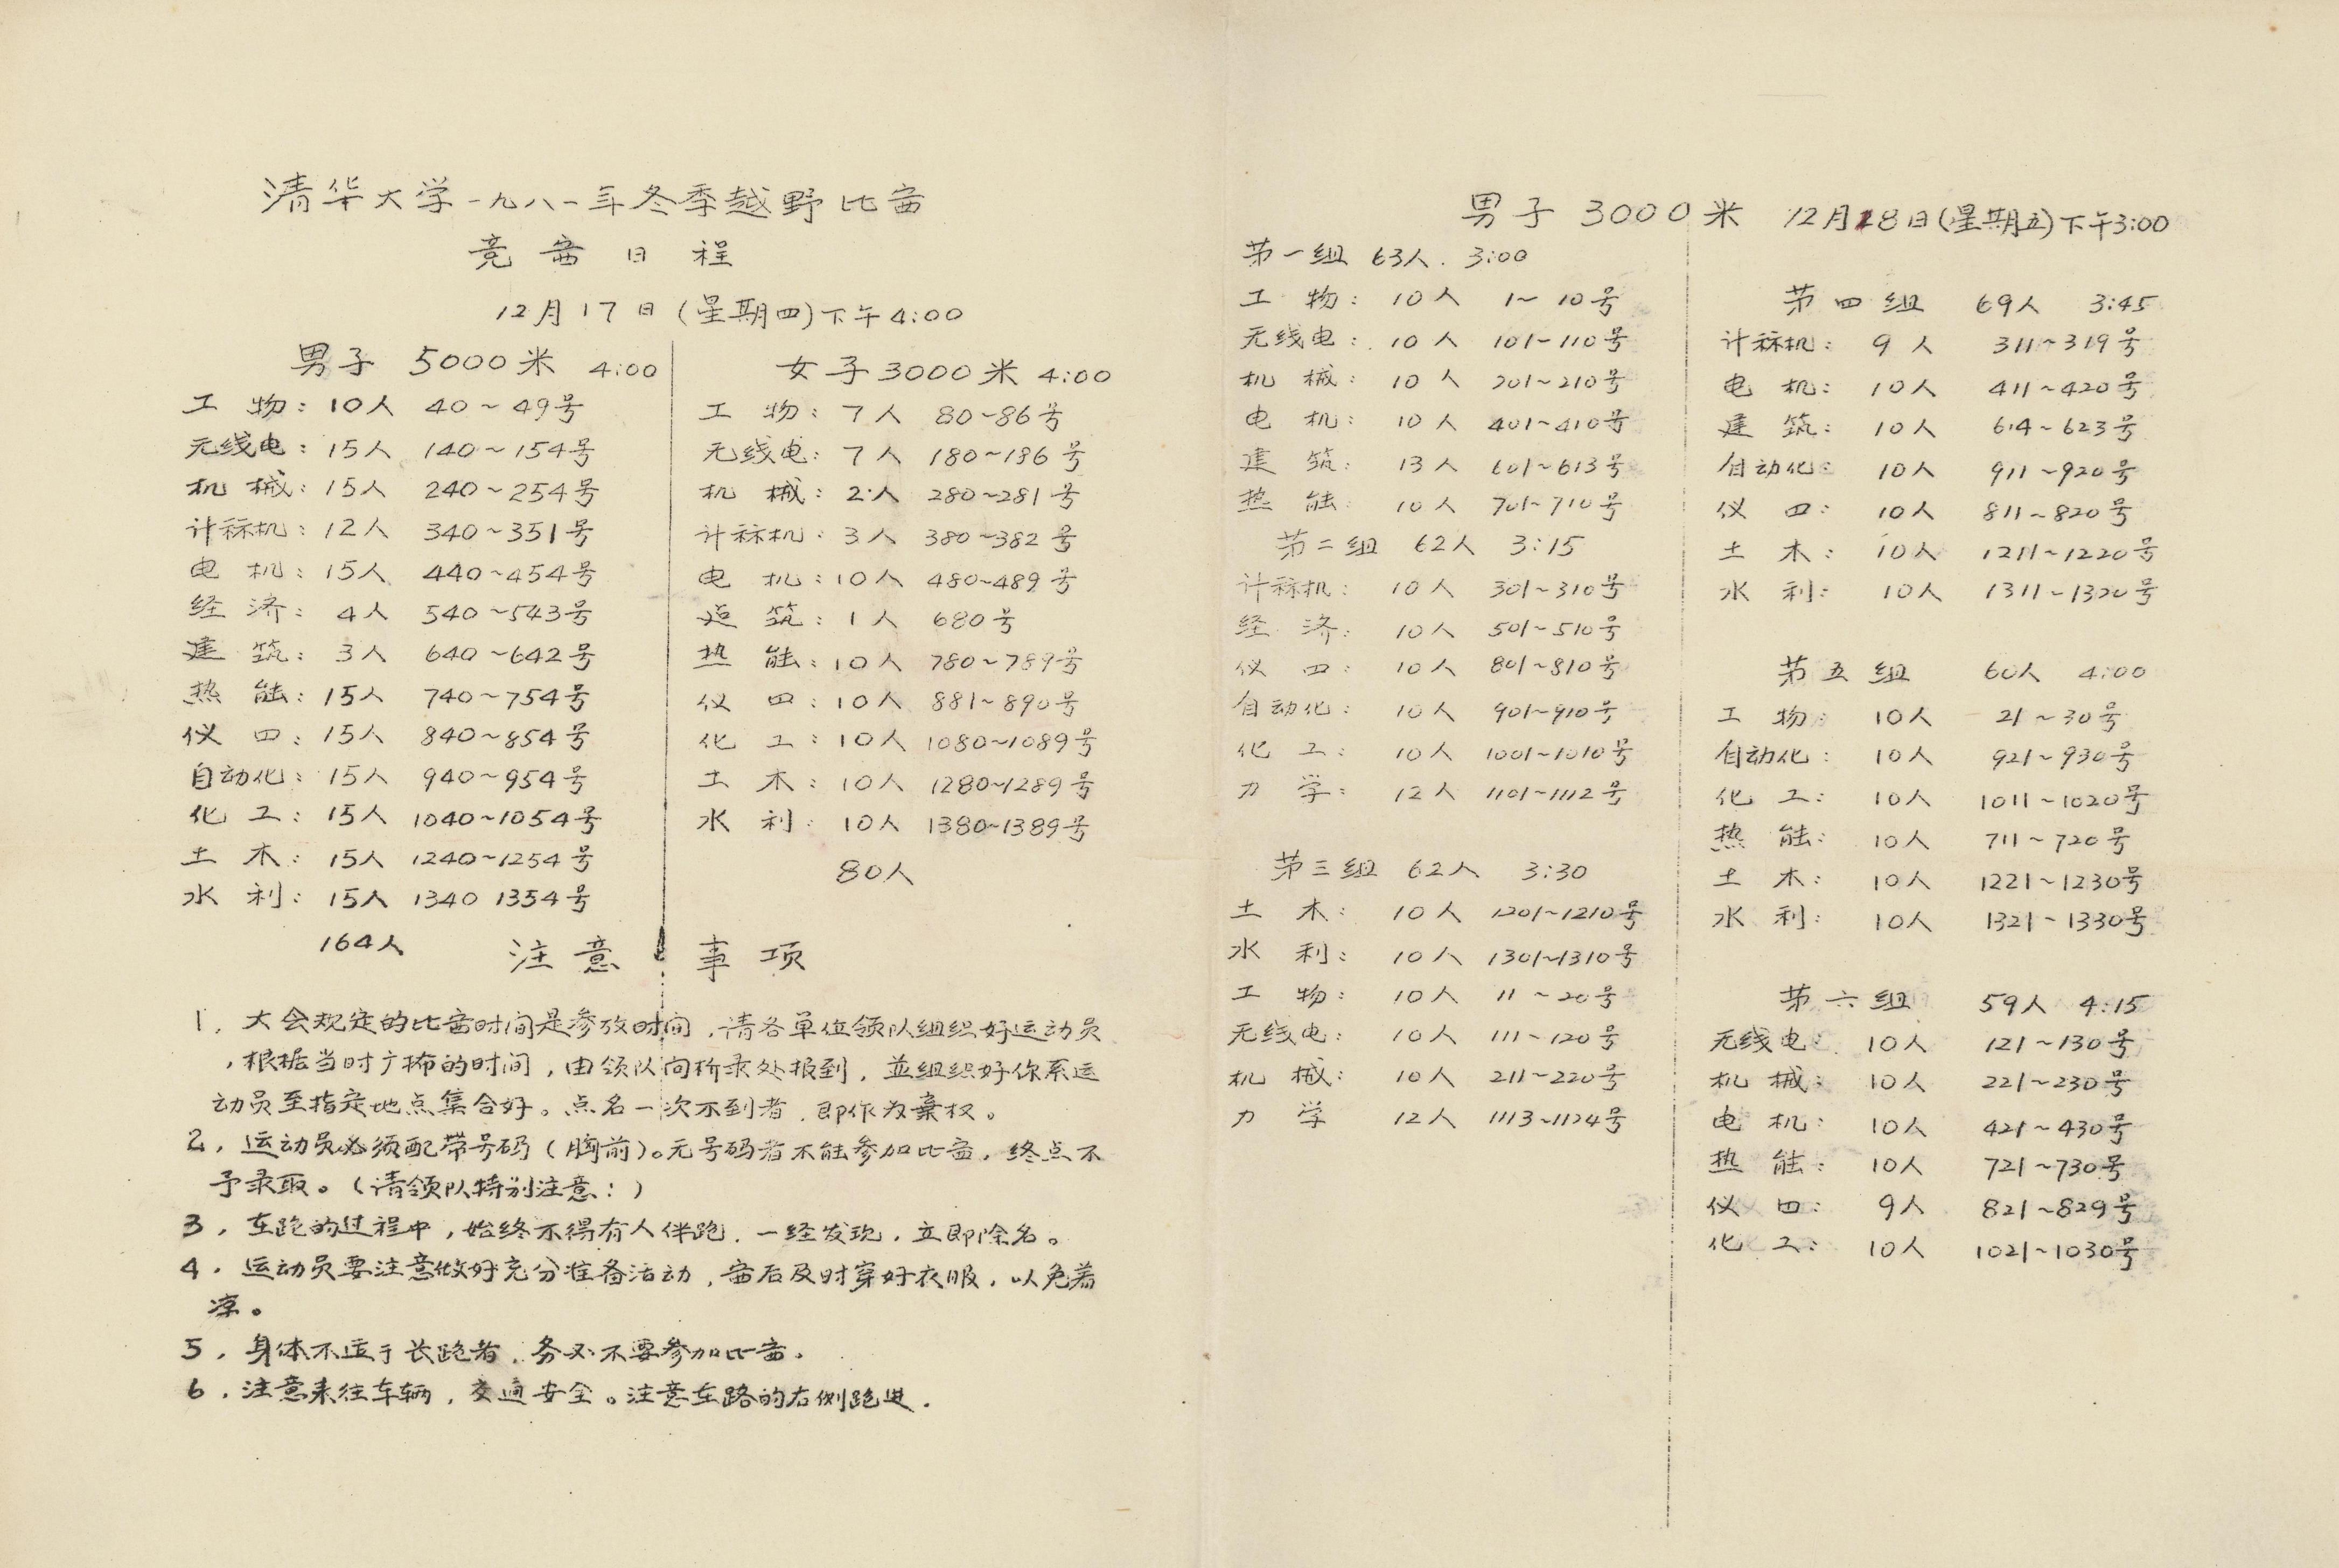 清华大学一九八一年冬季越野比赛
竞赛日程
12月17日(星期四)下午4:00
男子 5000米 4:00
工 物: 10人 40~49号
无线电: 15人 140~154号
机 械: 15人 240~254号
计祘机: 12人 340~351号
电 机: 15人 440~454号
经 济: 4人 540~543号
建 筑: 3人 640~642号
热 能: 15人 740~754号
仪 四: 15人 840~854号
自动化: 15人 940~954号
化 工: 15人 1040~1054号
土 木: 15人 1240~1254号
水 利: 15人 1340 1354号
164人
女子3000米 4:00
工 物: 7人 80~86号
无线电: 7人 180~186号
机 械: 2人 280~281号
计祘机: 3人 380~382号
电 机: 10人 480~489号
建 筑: 1人 680号
热 能: 10人 780~789号
仪 四: 10人 881~890号
化 工: 10人 1080~1089号
土 木: 10人 1280~1289号
水 利: 10人 1380~1389号
80人
注意事项
1. 大会规定的比赛时间是参放时间,请各单位领队组织好运动员
,根据当时广播的时间,由领队向祘录处报到,並组织好你系运
动员至指定地点集合好。点名一次不到者,即作为棄权。
2. 运动员必须配带号码(胸前)。无号码者不能参加比赛,终点不
予录取。(请领队特别注意:)
3. 在跑的过程中,始终不得有人伴跑,一经发现,立即除名。
4. 运动员要注意做好充分准备活动,赛后及时穿好衣服,以免着
凉。
5. 身体不适于长跑者,务必不要参加比赛.
6. 注意来往车辆,交通安全。注意在路的右侧跑进.
男子 3000米 12月18日(星期五)下午3:00
第一组 63人. 3:00
工 物: 10人 1~10号
无线电: 10人 101~110号
机 械: 10人 201~210号
电 机: 10人 401~410号
建 筑: 13人 601~613号
热 能: 10人 701~710号
第二组 62人 3:15
计祘机: 10人 301~310号
经 济: 10人 501~510号
仪 四: 10人 801~810号
自动化: 10人 901~910号
化 工: 10人 1001~1010号
力 学: 12人 1101~1112号
第三组 62人 3:30
土 木: 10人 1201~1210号
水 利: 10人 1301~1310号
工 物: 10人 11~20号
无线电: 10人 111~120号
机 械: 10人 211~220号
力 学 12人 1113~1124号
第四组 69人 3:45
计祘机: 9人 311~319号
电 机: 10人 411~420号
建 筑: 10人 614~623号
自动化: 10人 911~920号
仪 四: 10人 811~820号
土 木: 10人 1211~1220号
水 利: 10人 1311~1320号
第五组 60人 4:00
工 物: 10人 21~30号
自动化: 10人 921~930号
化 工: 10人 1011~1020号
热 能: 10人 711~720号
土 木: 10人 1221~1230号
水 利: 10人 1321~1330号
第六组 59人 4:15
无线电: 10人 121~130号
机 械: 10人 221~230号
电 机: 10人 421~430号
热 能: 10人 721~730号
仪 四: 9人 821~829号
化 工: 10人 1021~1030号